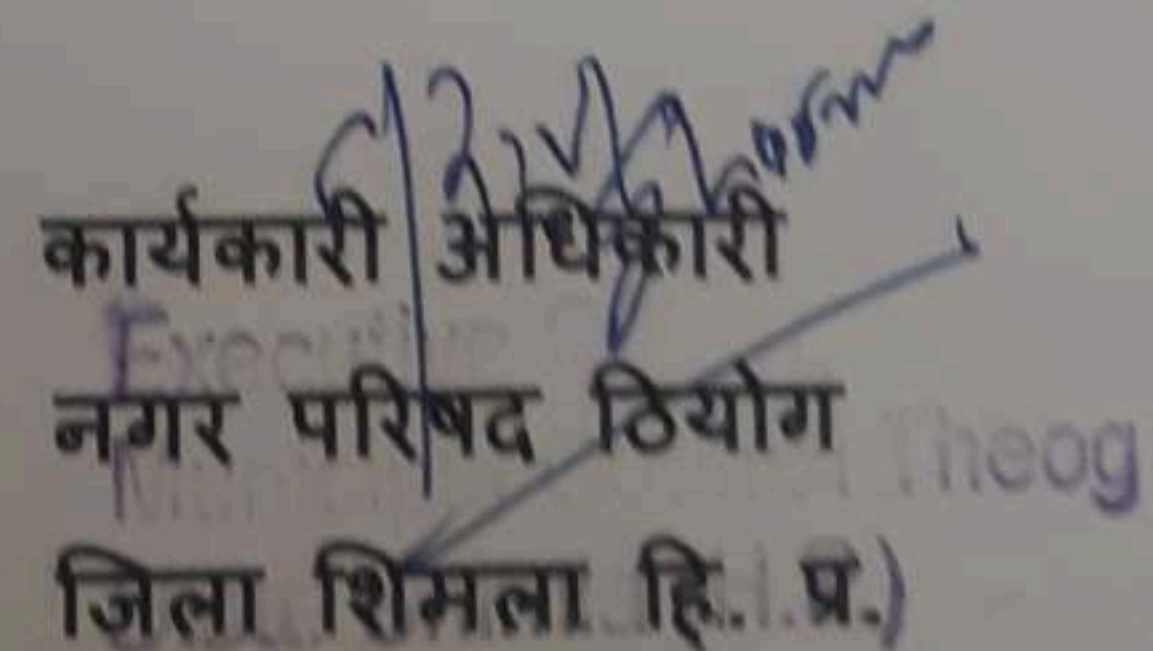 कार्यकारी अधिकारी
Executive
नगर परिषद ठियोग
Theog
जिला शिमला हि. प्र.)